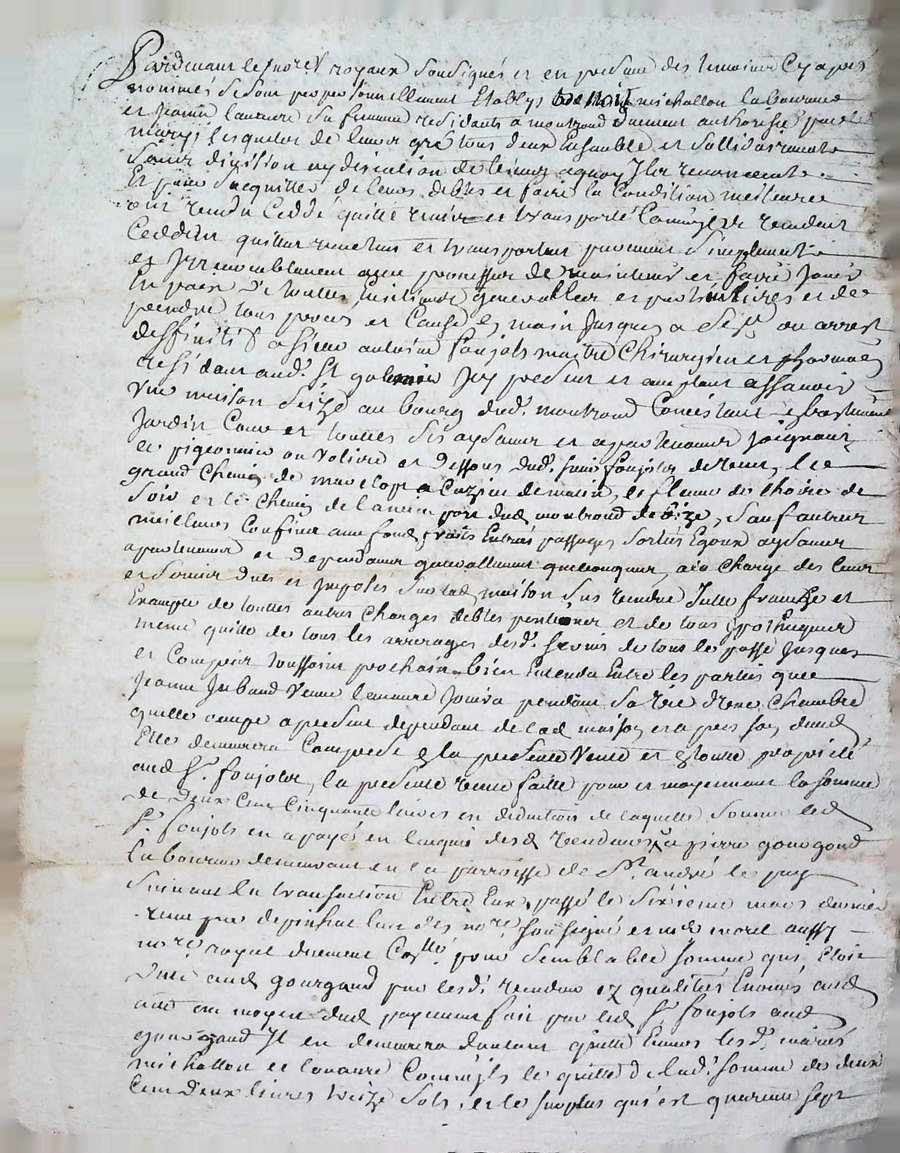 Pardevant le notes royaux soussignés et en presance des temoins cy apres
nommés se sont personnellement Etablys Benoit michallon laboureur
et Jeanne lauvure sa femme residants a montrond duement authorisée par led
mary, lesquelos de leurs gré tous deux Ensemble et sollidairement
sans division ny discution de biens a quoy Ils renoncent
Et pour s'acquitter de leurs debtes et faire la Condition meilleure
ont vendu Ceddé quitté remis et transporté Comme Ils vendent
Ceddent quittent remettent et transportent purement simplement
et Irrevocablement avec promesse de maintenir et faire Jouir
En paix de touttes Evictions generalles et particulieres et de
prendre tous proces et Cause En main Jusques a Sentce ou arrest
deffinitif a sieur antoine foujols maitre Chirurgien et
residant aud. St galmier Icy present et acceptant assavoir
Une maison size au bourg dud. montrond Consistant En bastiment
Jardin Cour et touttes ses aysances et appartenances Joignant
et pigeonnier ou voliere au dessous dud. sieur foujols de vent, le
grand Chemin de a de matin, le fleuve de Loire de
soir et le Chemin de l'ancien port dud montrond de bize, sauf autres
meilleurs Confins avec fonds, droits Entrées passages sorties Egoux aysances
apartenances et dependances generallement quelconques, a la Charge des Cens
et servis dues et Imposés sur lad. maison sus vendue Jcelle franche et
Exempte de touttes autres Charges debtes pentions et de tous hypotheques
meme quitte de tous les arrerages desd. servis de tous le passé Jusques
et Compris toussaint prochain bien Entendu Entre les parties que
Jeanne Veuve lauvure Jouira pendant sa vie d'une Chambre
qu'elle ocupe a present dependant de lad maison et apres son deced
Elle demeurera Comprise En la presente vente et En toute propriété
aud Sr. foujols, la presente vente faitte pour et moyennant la somme
de deux Cent Cinquante livres en deduction de laquelle somme led
Sr. foujols en a payé en l'acquit desd vendeurs a pierre gourgand
laboureur demeurant en la parroisse de St. andré le puy
suivant la transaction Entre Eux passé le sixieme mars dernier
reçue par depinhac l'un des nores soussigné et me morel aussy
nore royal duement Collé. pour semblable somme qui Etoit
Due aud gourgand par lesd. vendeurs Ez qualittés Enoncés aud
acte au moyen dud payement fait par led Sr foujols aud
gourgand Il en demeurera d'autant quitte Envers lesd. mariés
michallon et lauvure Comme Ils le quitte de lad. somme de deux
Cent deux livres treize sols, et le surplus qui est quarante sept